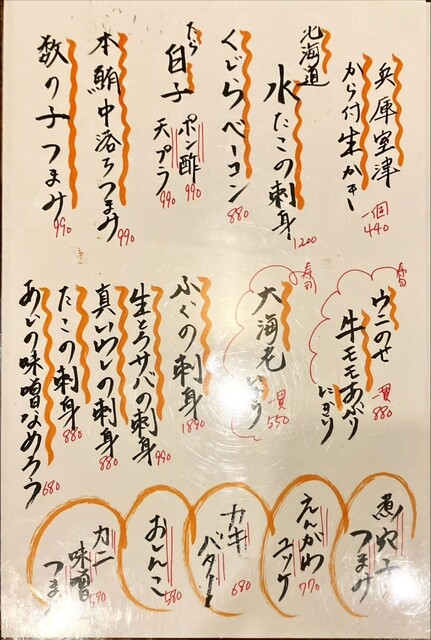 兵庫室津
から付生かき
一個
440
北海道
水たこの刺身
1200
くじらベーコン
880
たら
白子
ポン酢
990
天プラ
990
本鮪中落ちつまみ
990
数の子つまみ
990
寿司
ウニのせ
牛モモあぶり
にぎり
一貫
880
寿司
大海老
にぎり
一貫
550
ふぐの刺身
1890
生とろサバの刺身
990
真いわしの刺身
880
たこの刺身
880
あじの味噌なめろう
680
煮穴子
つまみ
えんがわ
ユッケ
770
カキ
バター
690
おしんこ
580
カニ
味噌
つま
590